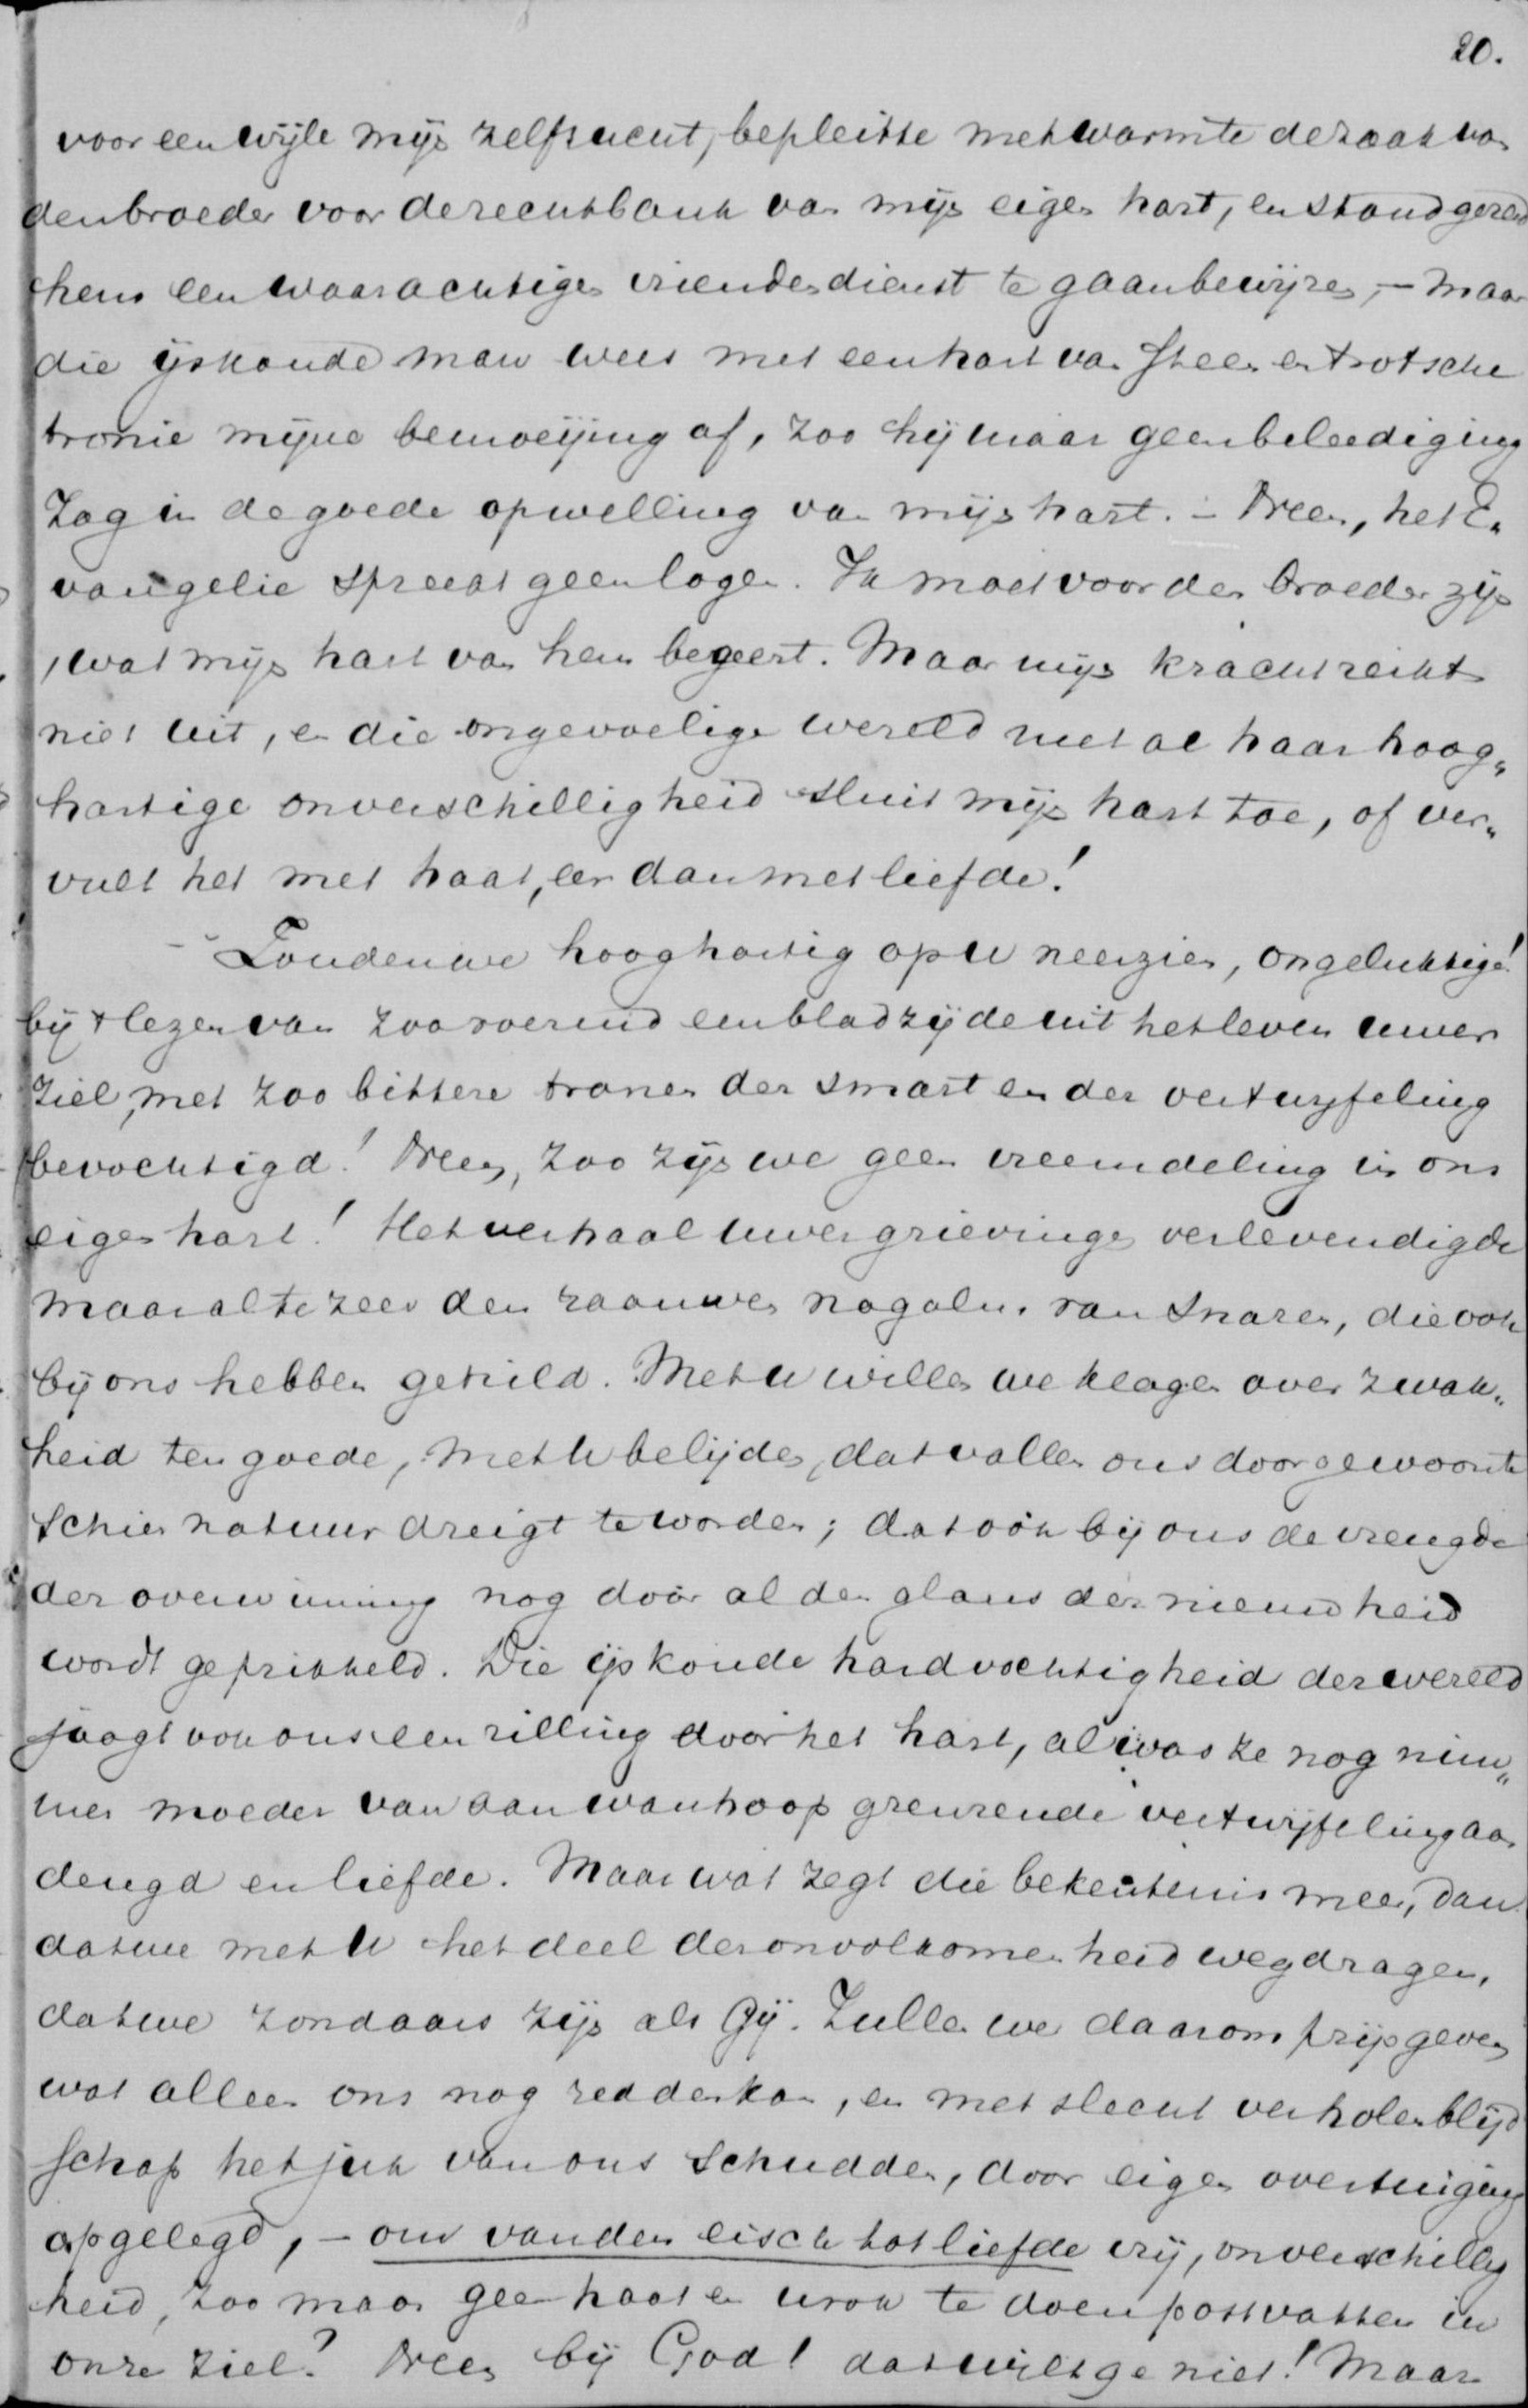 20.
voor een wijle mijn zelfzucht, bepleitte met warmte de zaak van
den broeder voor de rechtbank van mijn eigen hart, en stond gereed
hem een waarachtigen vriendendienst te gaan bewijzen, – maar
die ijskoude man wees met een hart van steen en trotsche
tronie mijne bemoeijing af, zoo hij maar geen beleediging
zag in de goede opwelling van mijn hart. – Neen, het E„
vangelie spreekt geen logen. Ik moet voor den broeder zijn
, wat mijn hart van hem begeert. Maar mijn kracht reikt
niet uit, en die ongevoelige wereld met al haar hoog„
hartige onverschilligheid sluit mijn hart toe, of ver„
vult het met haat, eer dan met liefde!
– Zouden we hooghartig op u neerzien, ongelukkige!
bij 't lezen van zoo roerend een bladzijde uit het leven uwer
ziel, met zoo bittere tranen der smart en der vertwijfeling
bevochtigd! Neen, zoo zijn we geen vreemdeling in ons
eigen hart! Het verhaal uwer grievingen verlevendigde
maar al te zeer den raauwen nagalm van snaren, die ook
bij ons hebben getrild. Met u willen we klagen over zwak„
heid ten goede, met U belijden, dat vallen ons door gewoonte
schier natuur dreigt te worden; dat oók bij ons de vreugde
der overwinning nog door al den glans der nieuwheid
wordt geprikkeld. Die ijskoude hardvochtigheid der wereld
jaagt ook ons een rilling door het hart, al was ze nog nim„
mer moeder van aan wanhoop grenzende vertwijfeling aan
deugd en liefde. Maar wat zegt die bekentenis meer, dan
dat we met U het deel der onvolkomenheid wegdragen,
dat we zondaars zijn als Gij. Zullen we daarom prijsgeven
wat alleen ons nog redden kan, en met slecht verholen blijd
schap het juk van ons schudden, door eigen overtuiging
opgelegd, – om van den eisch tot liefde vrij, onverschillig
heid, zoo maar geen haat en wrok te doen postvatten in
onze ziel? Neen bij God! dat wilt ge niet! Maar